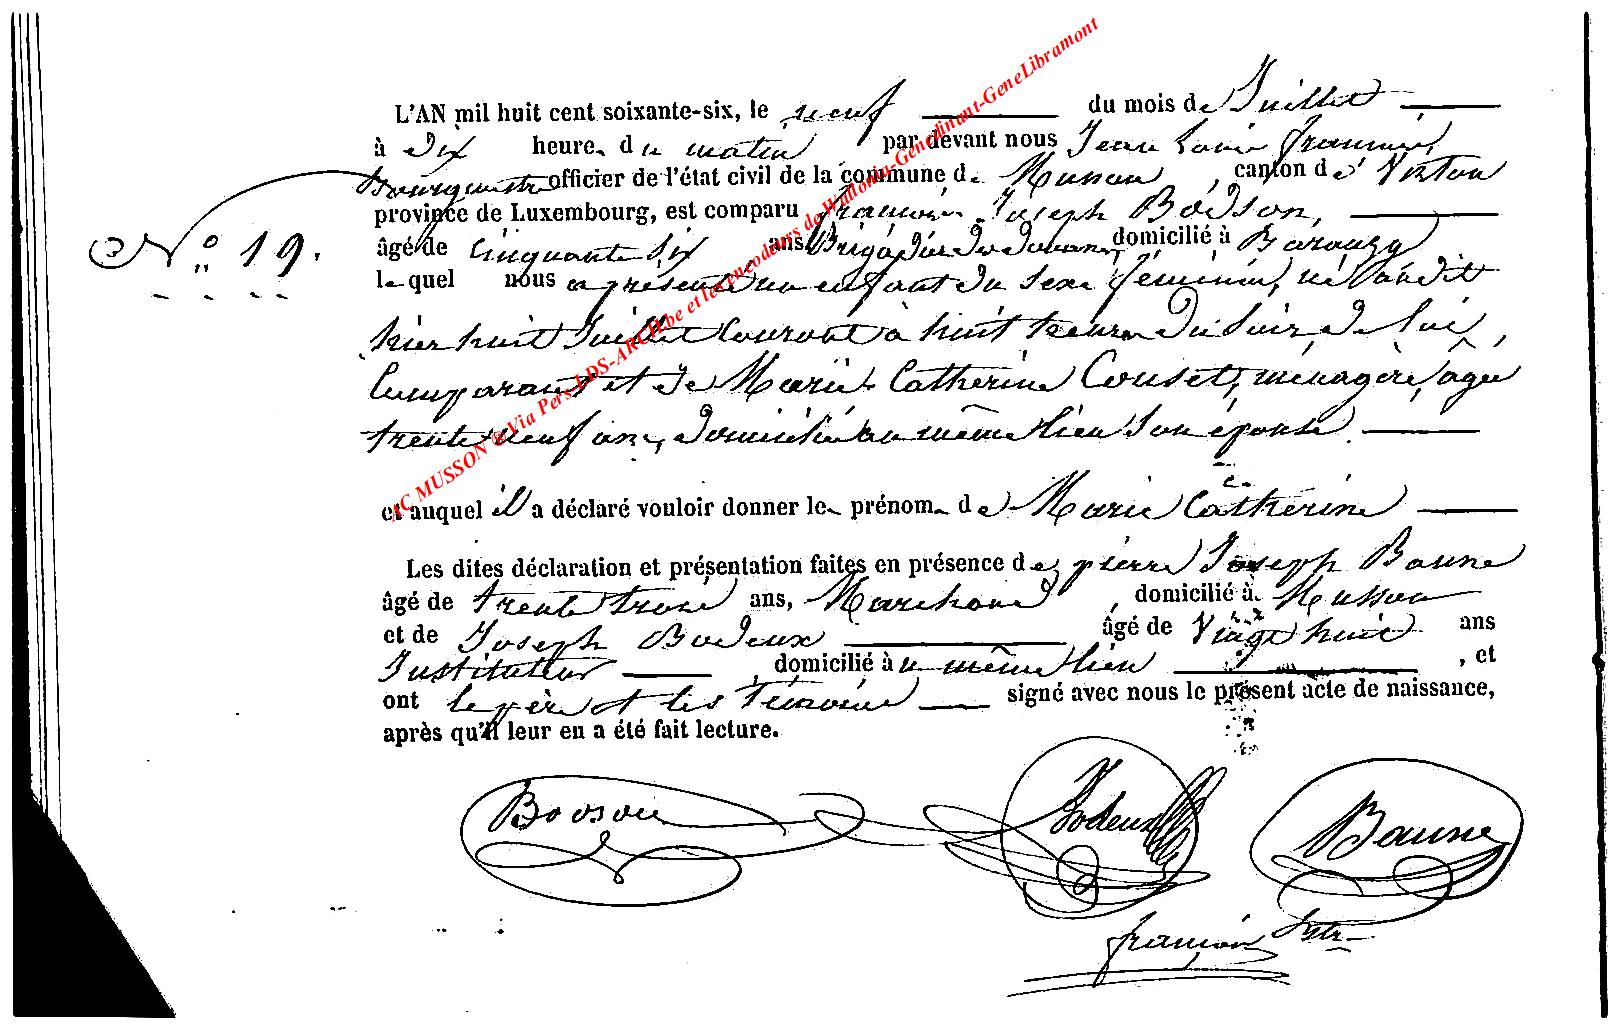 L'AN mil huit cent soixante-six, le neuf du mois de Juillet
à dix heures du matin par devant nous Jean Louis François,
Bourgmestre officier de l'état civil de la commune de Musson, canton de Virton
province de Luxembourg, est comparu François Joseph Bodson,
N° 19. âgé de cinquante six ans Brigadier de douane, domicilié à Baranzy
lequel nous a présenté un enfant du sexe féminin, né
hier huit Juillet courant à huit heures du soir, de lui,
Comparant et de Marie Catherine Couset, ménagère, âgée
trente neuf ans, domiciliée au même lieu son épouse
et auquel il a déclaré vouloir donner les prénoms de Marie Catherine
Les dites déclaration et présentation faites en présence de pierre Joseph Baune
âgé de trente trois ans, Marchand, domicilié à Musson
et de Joseph Bodeux âgé de Vingt huit ans
Instituteur, domicilié au même lieu, et
ont le père et les témoins signé avec nous le présent acte de naissance,
après qu'il leur en a été fait lecture.
Bodson Bodeux Baune
françois
AC MUSSON @ Via Pers LDS-ARCH.be et les encodeurs de Wallonia-Genedinant-GeneLibramont